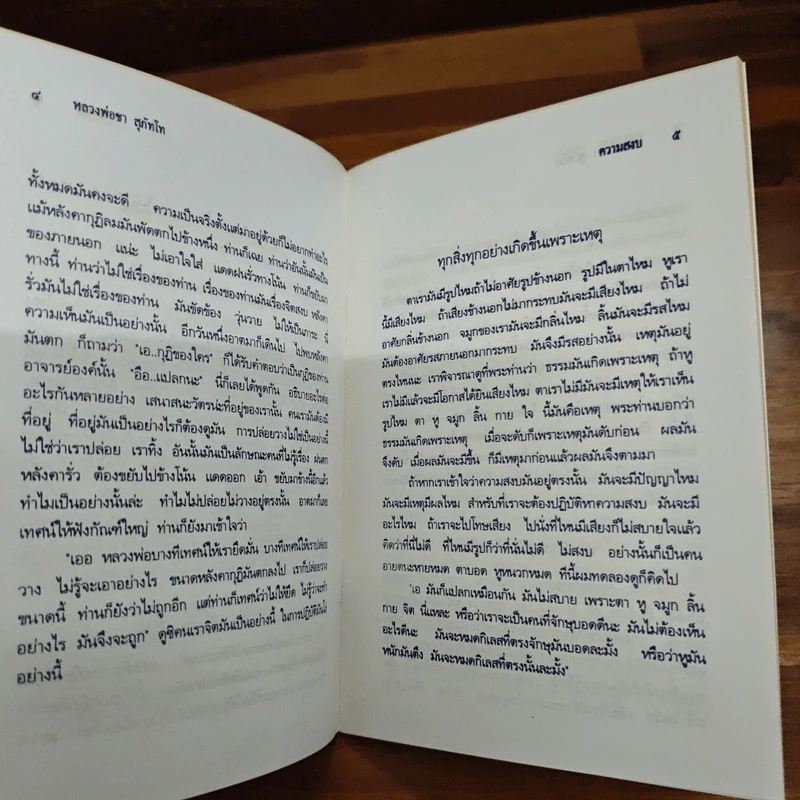 ๔ หลวงพ่อชา สุภัทโท
ทั้งหมดมันคงจะดี ความเป็นจริงตั้งแต่มาอยู่ด้วยก็ไม่อยากทำอะไร
แม้หลังคากุฏิลมมันพัดตกไปข้างหนึ่ง ท่านก็เฉย ท่านว่าอันนั้นมันเป็น
ของภายนอก แน่ะ ไม่เอาใจใส่ แดดฝนรั่วทางโน้น ท่านก็ขยับมา
ทางนี้ ท่านว่าไม่ใช่เรื่องของท่าน เรื่องของท่านมันเรื่องจิตสงบ หลังคา
รั่วมันไม่ใช่เรื่องของท่าน มันขัดข้อง วุ่นวาย ไม่ให้เป็นภาระ นี่
ความเห็นมันเป็นอย่างนั้น อีกวันหนึ่งอาตมาก็เดินไป ไปพบหลังคา
มันตก ก็ถามว่า "เอ..กุฏิของใคร" ก็ได้รับคำตอบว่าเป็นกุฏิของท่าน
อาจารย์องค์นั้น "อือ..แปลกนะ" นี่ก็เลยได้พูดกัน อธิบายอะไรต่อ
อะไรกันหลายอย่าง เสนาสนะวัตรน่ะที่อยู่ของเรานั้น คนเรามันต้องมี
ที่อยู่ ที่อยู่มันเป็นอย่างไรก็ต้องดูมัน การปล่อยวางไม่ใช่เป็นอย่างนี้
ไม่ใช่ว่าเราปล่อย เราทิ้ง อันนั้นมันเป็นลักษณะคนที่ไม่รู้เรื่อง ฝนตก
หลังคารั่ว ต้องขยับไปข้างโน้น แดดออก เอ้า ขยับมาข้างนี้อีกแล้ว
ทำไมเป็นอย่างนั้นล่ะ ทำไมไม่ปล่อยไม่วางอยู่ตรงนั้น อาตมาก็เลย
เทศน์ให้ฟังกัณฑ์ใหญ่ ท่านก็ยังมาเข้าใจว่า
"เออ หลวงพ่อบางทีเทศน์ให้เรายึดมั่น บางทีเทศน์ให้เราปล่อย
วาง ไม่รู้จะเอาอย่างไร ขนาดหลังคากุฏิมันตกลงไป เราก็ปล่อยวาง
ขนาดนี้ ท่านก็ยังว่าไม่ถูกอีก แต่ท่านก็เทศน์ว่าไม่ให้ยึด ไม่รู้ว่าจะทำ
อย่างไร มันจึงจะถูก" ดูซิคนเราจิตมันเป็นอย่างนี้ ในการปฏิบัติมันโง่
อย่างนี้
ความสงบ ๕
ทุกสิ่งทุกอย่างเกิดขึ้นเพราะเหตุ
ตาเรามันมีรูปไหมถ้าไม่อาศัยรูปข้างนอก รูปมีในตาไหม หูเรา
นี้มีเสียงไหม ถ้าเสียงข้างนอกไม่มากระทบมันจะมีเสียงไหม ถ้าไม่
อาศัยกลิ่นข้างนอก จมูกของเรามันจะมีกลิ่นไหม ลิ้นมันจะมีรสไหม
มันต้องอาศัยรสภายนอกมากระทบ มันจึงมีรสอย่างนั้น เหตุมันอยู่
ตรงไหนนะ เราพิจารณาดูที่พระท่านว่า ธรรมมันเกิดเพราะเหตุ ถ้าหู
เราไม่มีแล้วจะมีโอกาสได้ยินเสียงไหม ตาเราไม่มีมันจะมีเหตุให้เราเห็น
รูปไหม ตา หู จมูก ลิ้น กาย ใจ นี้มันคือเหตุ พระท่านบอกว่า
ธรรมมันเกิดเพราะเหตุ เมื่อจะดับก็เพราะเหตุมันดับก่อน ผลมัน
จึงดับ เมื่อผลมันจะมีขึ้น ก็มีเหตุมาก่อนแล้วผลมันจึงตามมา
ถ้าหากเราเข้าใจว่าความสงบมันอยู่ตรงนั้น มันจะมีปัญญาไหม
มันจะมีเหตุมีผลไหม สำหรับที่เราจะต้องปฏิบัติหาความสงบ มันจะมี
อะไรไหม ถ้าเราจะไปโทษเสียง ไปนั่งที่ไหนมีเสียงก็ไม่สบายใจแล้ว
คิดว่าที่นี่ไม่ดี ที่ไหนมีรูปก็ว่าที่นั่นไม่ดี ไม่สงบ อย่างนั้นก็เป็นคน
อายตนะหายหมด ตาบอด หูหนวกหมด ทีนี้ผมทดลองดูก็คิดไป
"เอ มันก็แปลกเหมือนกัน มันไม่สบาย เพราะตา หู จมูก ลิ้น
กาย จิต นี่แหละ หรือว่าเราจะเป็นคนที่จักษุบอดดีนะ มันไม่ต้องเห็น
อะไรดีนะ มันจะหมดกิเลสที่ตรงจักษุมันบอดละมั้ง หรือว่าหูมัน
หนักมันตึง มันจะหมดกิเลสที่ตรงนั้นละมั้ง"